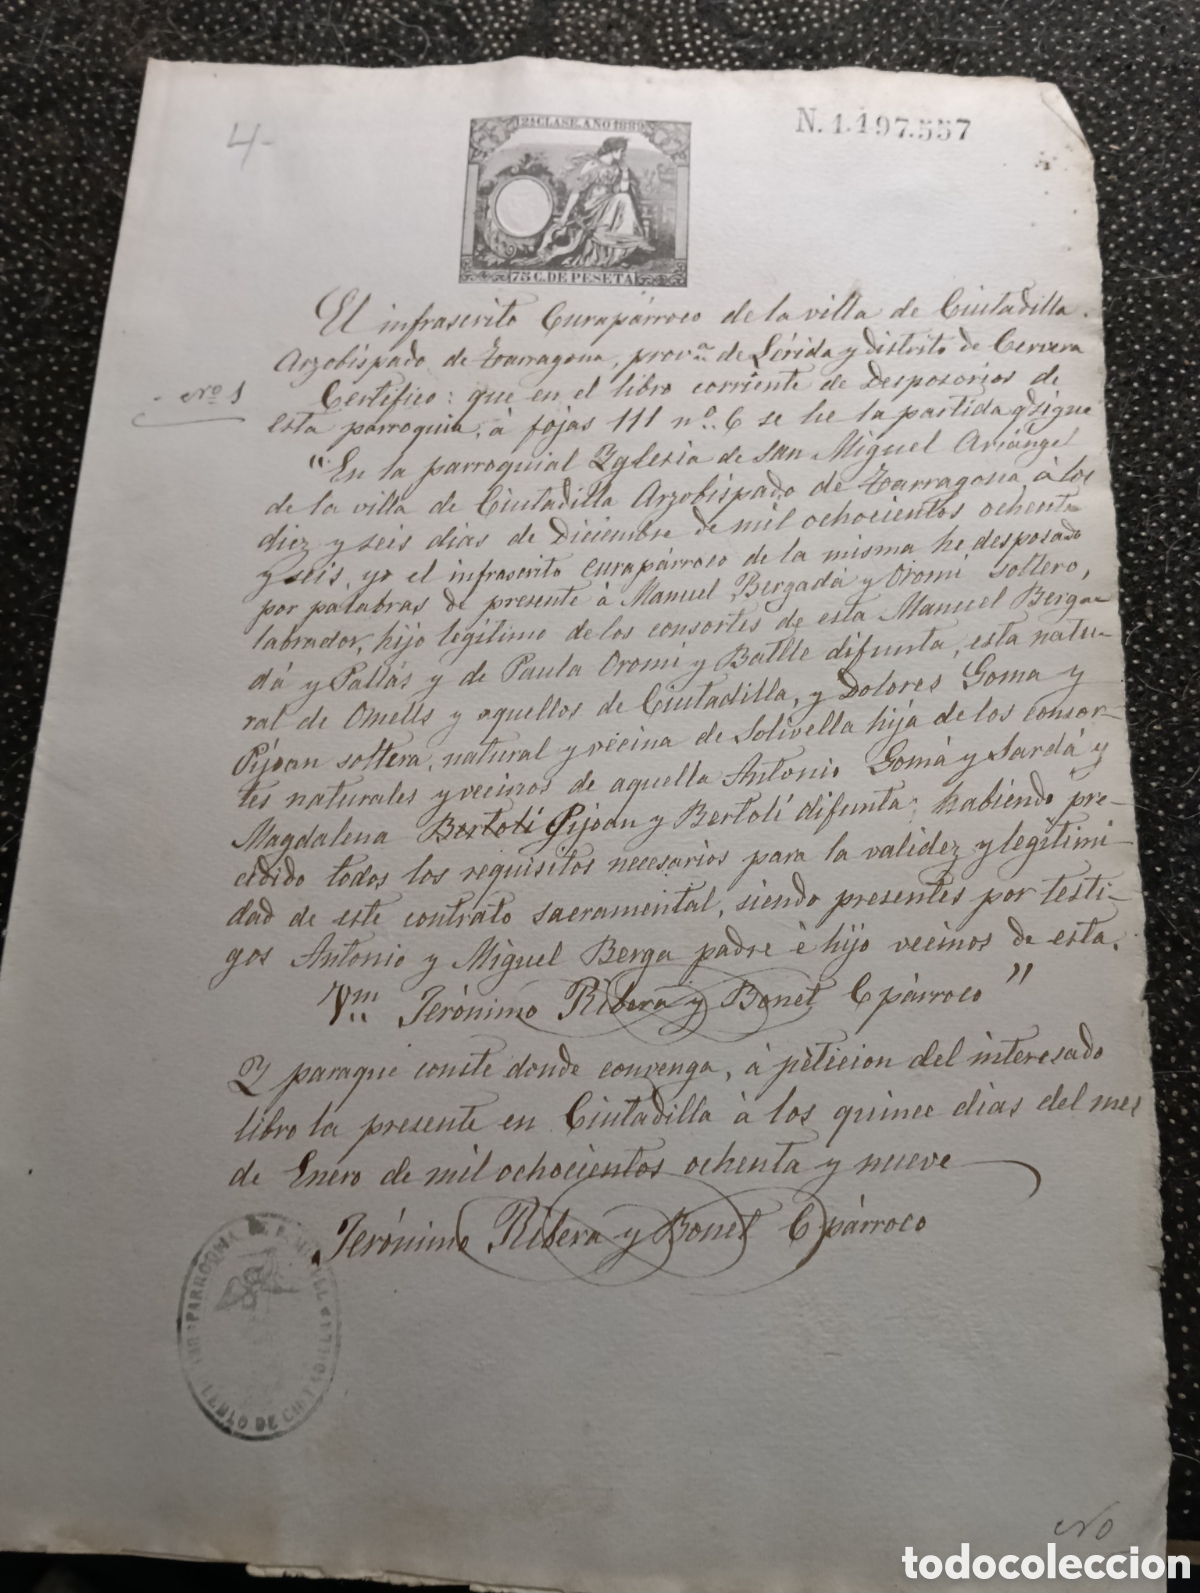 4-
12ª CLASE. AÑO 1889
N. 1.197.557
75 C. DE PESETA
El infrascrito Curapárroco de la villa de Ciutadilla.
Arzobispado de Tarragona, provª de Lérida y distrito de Cervera
Nº 1
Certifico: que en el libro corriente de Desposorios de
esta parroquia, á fojas 111 nº. 6 se he la partida q sigue
"En la parroquial Yglesia de San Miguel Arcángel
de la villa de Ciutadilla Arzobispado de Tarragona á los
diez y seis dias de Diciembre de mil ochocientos ochenta
y seis, yo el infrascrito curapárroco de la misma he desposado
por palabras de presente á Manuel Bergadá y Oromi soltero,
labrador, hijo legítimo de los consortes de esta Manuel Berga-
dá y Pallás y de Paula Oromi y Batlle difunta, esta natu-
ral de Omells y aquellos de Ciutadilla, y Dolores Goma y
Pijoan soltera, natural y vecina de Solivella hija de los consor-
tes naturales y vecinos de aquella Antonio Gomá y Sardá y
Magdalena Bertolí Pijoan y Bertolí difunta; habiendo pre-
cidido todos los requisitos necesarios para la validez y legitimi-
dad de este contrato sacramental, siendo presentes por testi-
gos Antonio y Miguel Berga padre é hijo vecinos de esta.
Jerónimo Ribera y Bonet C párroco"
Y paraque conste donde convenga, á peticion del interesado
libro la presente en Ciutadilla á los quince dias del mes
de Enero de mil ochocientos ochenta y nueve
Jerónimo Ribera y Bonet C párroco
PARROQUIA DE
todocoleccion